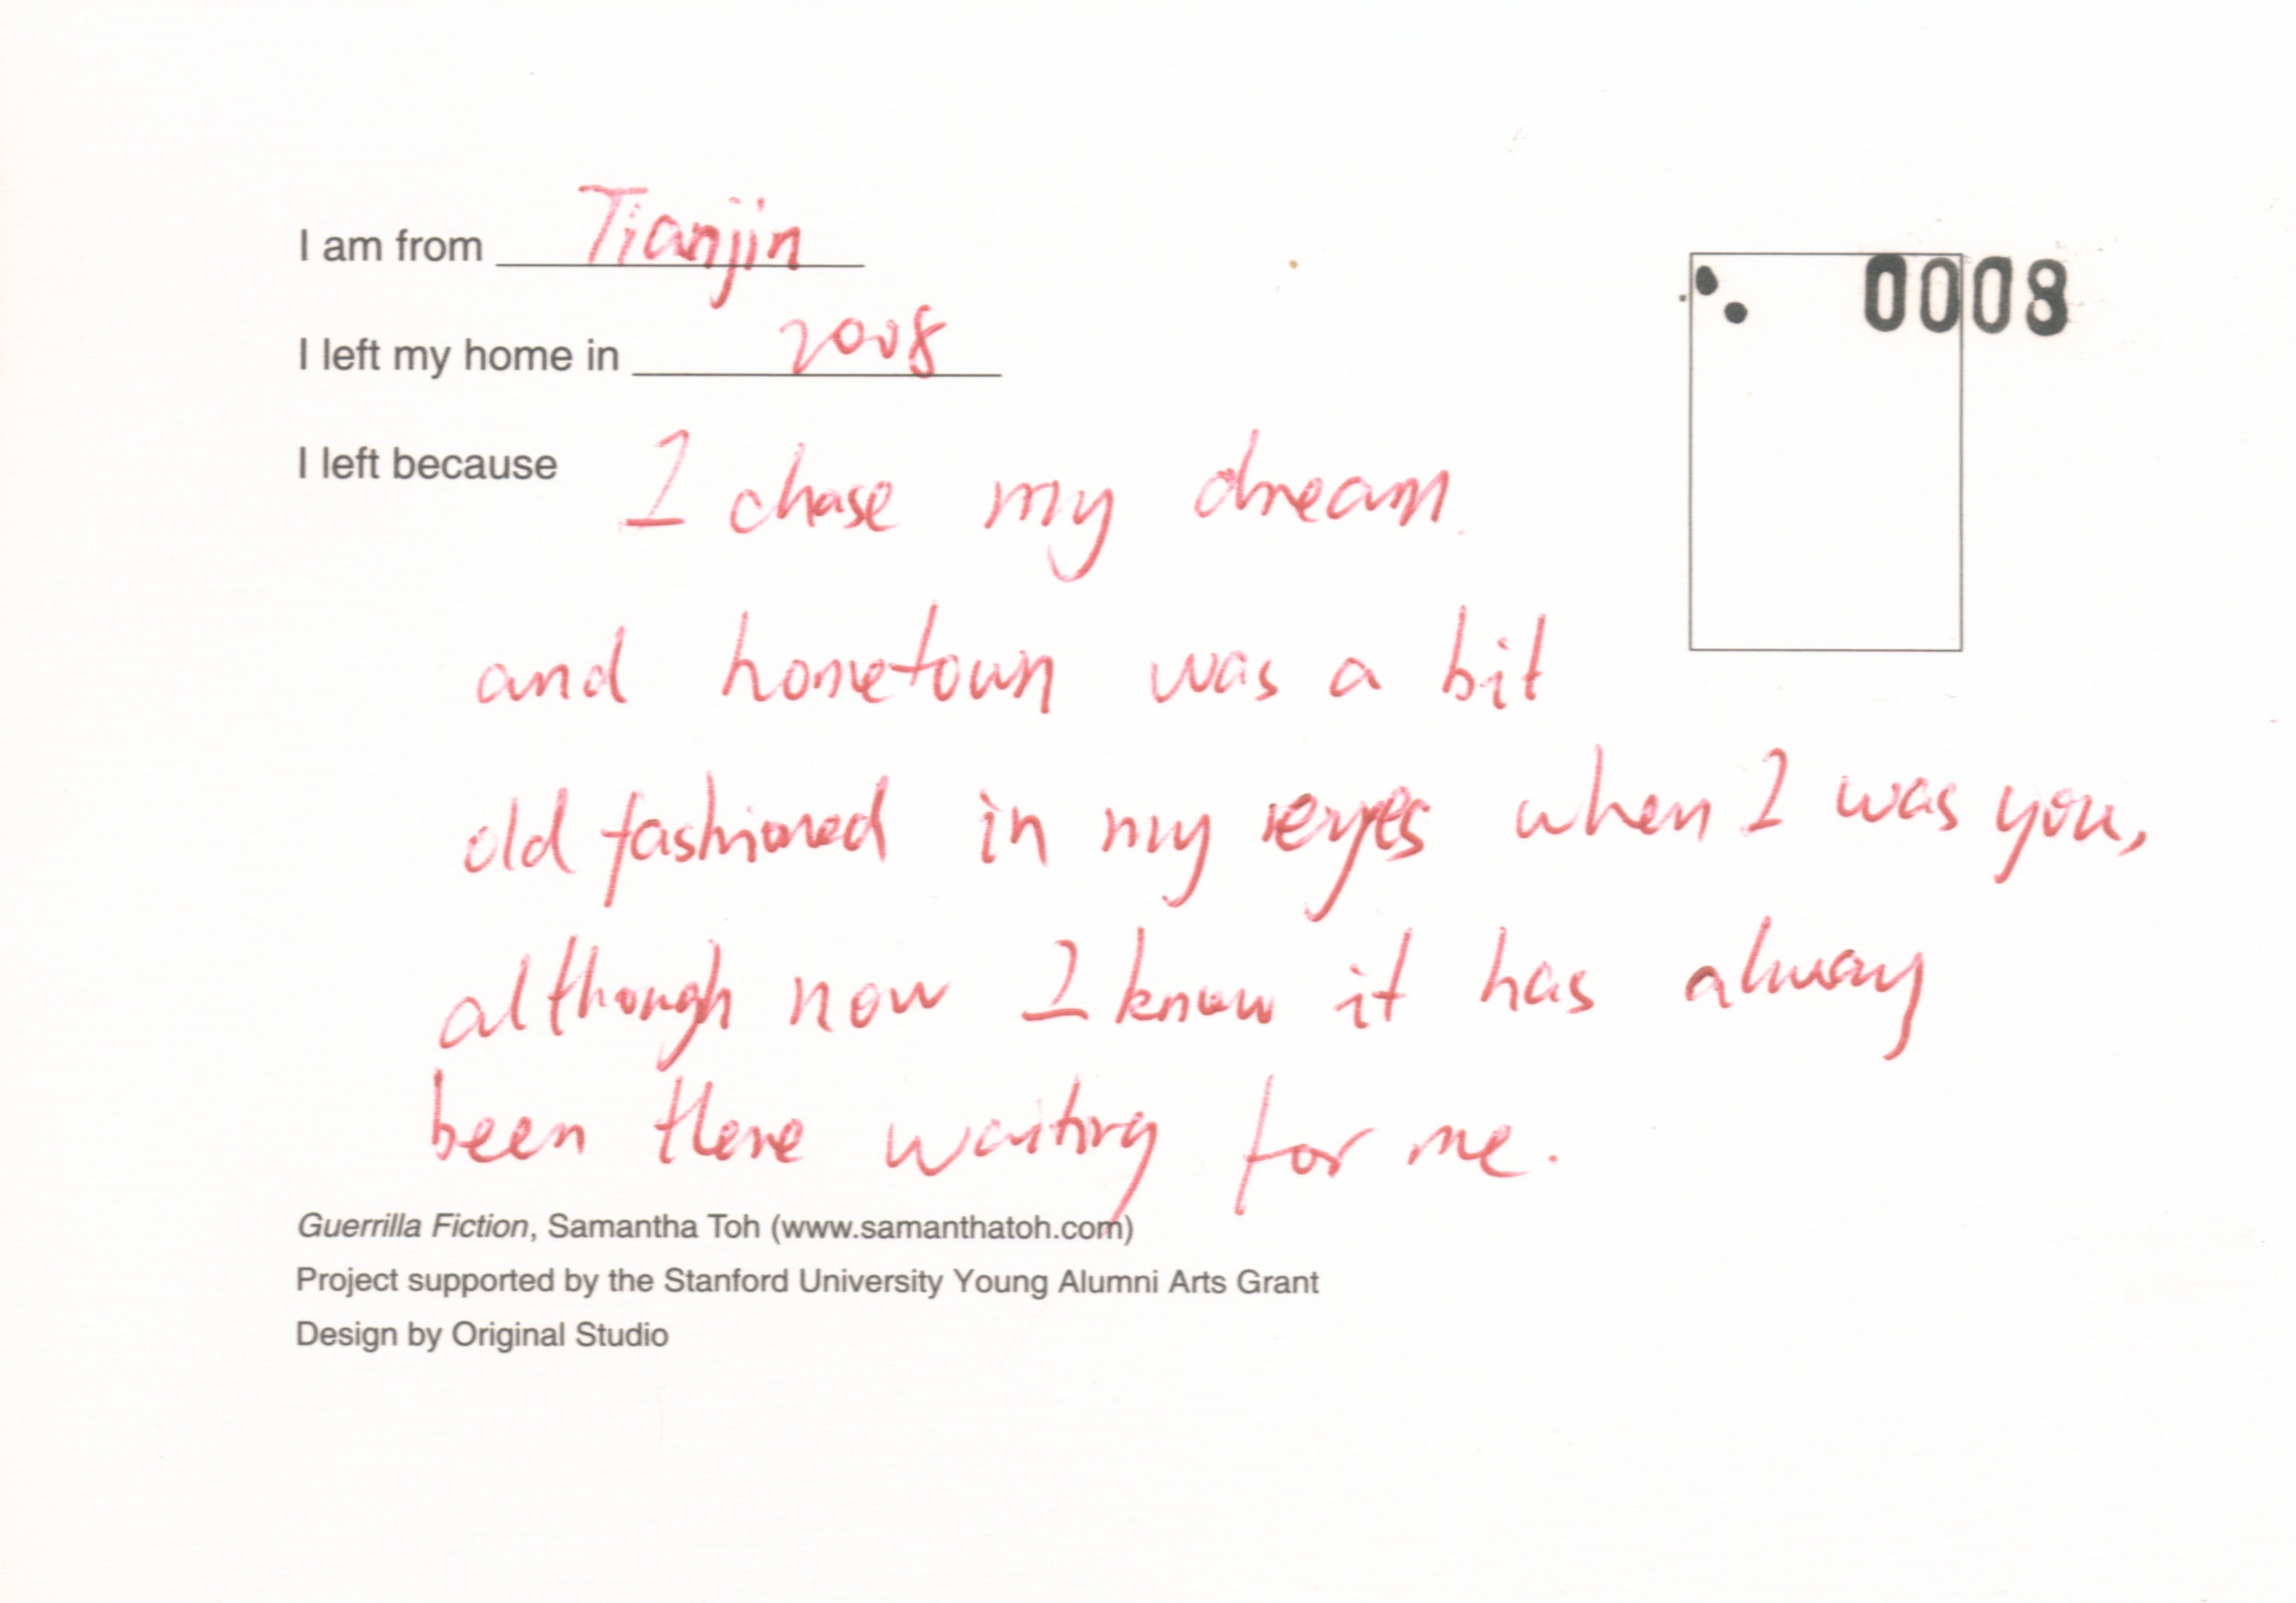 I am from Tianjin
0008
I left my home in 2008
I left because I chase my dream.
and hometown was a bit
old fashioned in my eyes when I was you,
although now I know it has alway
been there waiting for me.
Guerrilla Fiction, Samantha Toh (www.samanthatoh.com)
Project supported by the Stanford University Young Alumni Arts Grant
Design by Original Studio